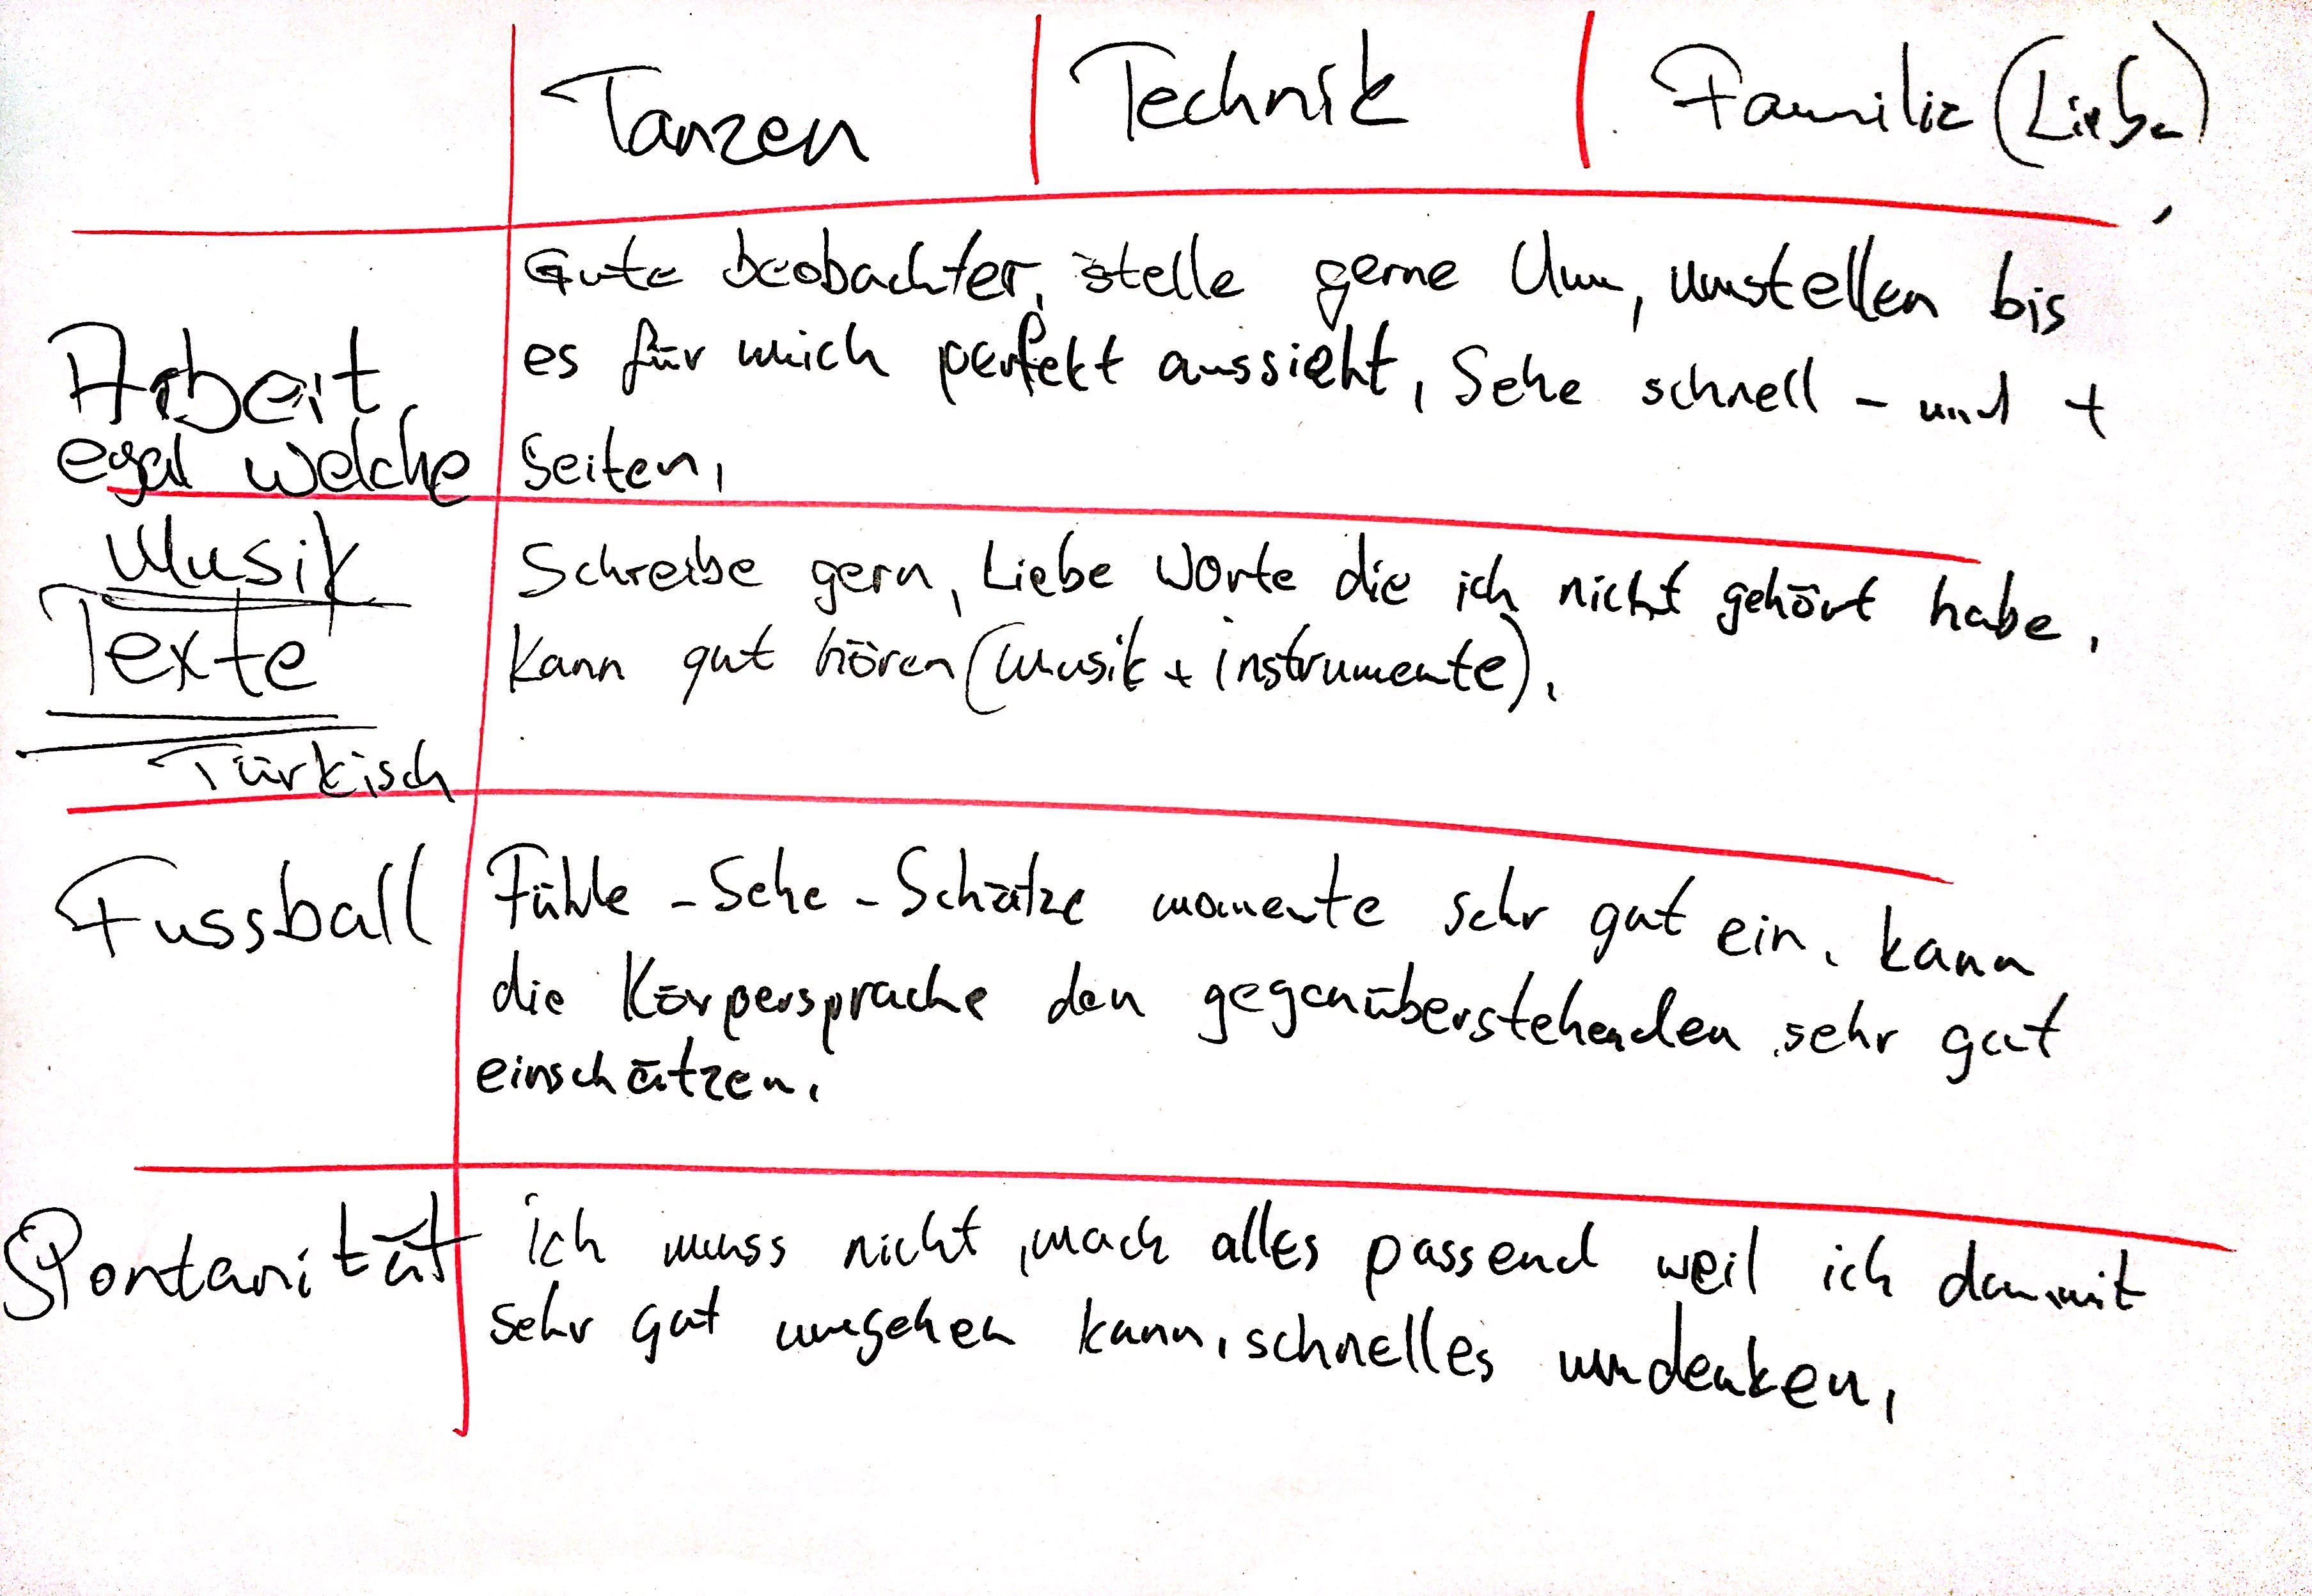 Tanzen | Technik | Familie (Liebe)
Gute beobachter, stelle gerne Um, umstellen bis
es für mich perfekt aussieht, Sehe schnell - und +
Arbeit
egal welche
Seiten,
Musik
Texte
Türkisch
Schreibe gern, Liebe Worte die ich nicht gehört habe,
Kann gut hören (Musik + instrumente),
Fussball
Fühle - Sehe - Schätze momente sehr gut ein, kann
die Körpersprache den gegenüberstehenden sehr gut
einschätzen,
Spontanität
ich muss nicht, mach alles passend weil ich dammit
sehr gut umgehen kann, schnelles umdenken,